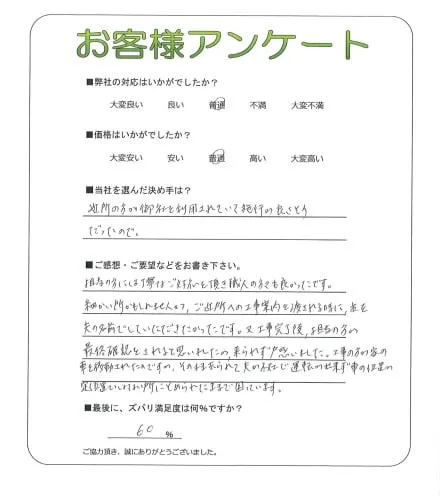 お客様アンケート
■弊社の対応はいかがでしたか?
大変良い 良い 普通 不満 大変不満
■価格はいかがでしたか?
大変安い 安い 普通 高い 大変高い
■当社を選んだ決め手は?
近所の方が御社を利用されていて施行の良さそう
だったので。
■ご感想・ご要望などをお書き下さい。
担当の方には丁寧なご対応を頂き職人の方も良かったです。
細かい所かもしれませんが、ご近所への工事案内を渡される時に、
夫の名前でしていただきたかったです。又工事完了後、担当の方が
最終確認をされると思いましたの、来られず 思いました。工事の方が家の
車を移動されたのですの、そのまま 夫が不在で運転の出来ず車の
にとめられたままで困っています。
■最後に、ズバリ満足度は何%ですか?
60 %
ご協力頂き、誠にありがとうございました。